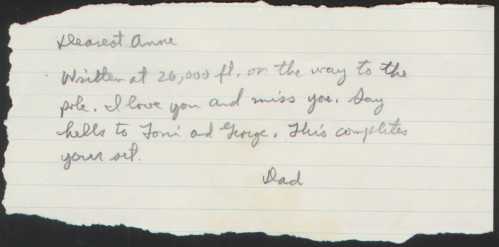 Dearest Anne
Written at 20,000 ft. on the way to the
pole. I love you and miss you. Say
hello to Toni and George. This completes
your set.
Dad